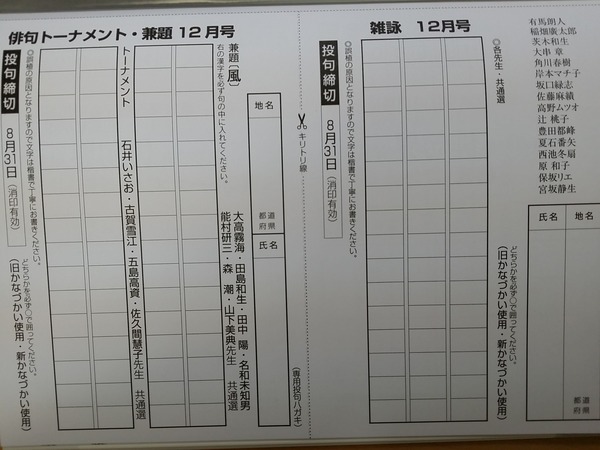 有馬朗人
稲畑廣太郎
茨木和生
大串 章
角川春樹
岸本マチ子
坂口緑志
佐藤麻績
高野ムツオ
辻 桃子
豊田都峰
夏石番矢
西池冬扇
原 和子
保坂リエ
宮坂静生
地名
氏名
都道府県
雑詠 12月号
◎各先生・共通選
どちらかを必ず○で囲ってください。
(旧かなづかい使用・新かなづかい使用)
◎誤植の原因となりますので文字は楷書で丁寧にお書きください。
投句締切 8月31日(消印有効)
キリトリ線
(専用投句ハガキ)
俳句トーナメント・兼題 12月号
地名
都道府県
氏名
兼題[風]
右の漢字を必ず句の中に入れてください。
大高霧海・田島和生・田中 陽・名和未知男
能村研三・森 潮・山下美典先生 共通選
トーナメント 石井いさお・古賀雪江・五島高資・佐久間慧子先生 共通選
◎誤植の原因となりますので文字は楷書で丁寧にお書きください。
どちらかを必ず○で囲ってください。
投句締切 8月31日(消印有効)
(旧かなづかい使用・新かなづかい使用)